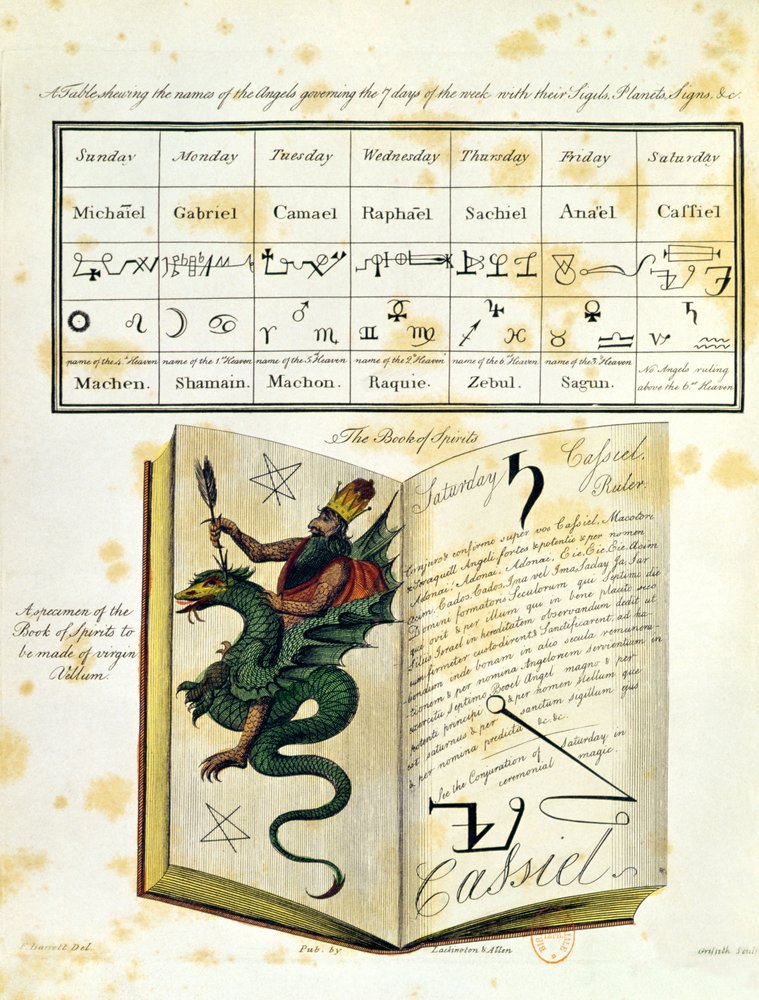 A Table shewing the names of the Angels governing the 7 days of the week with their Sigils, Planets, Signs, &c.
Sunday Monday Tuesday Wednesday Thursday Friday Saturday
Michaïel Gabriel Camael Raphaël Sachiel Anaël Caſſiel
☉ ♌ ☽ ♋ ♂ ♈ ♏ ☿ ♊ ♍ ♃ ♐ ♓ ♀ ♉ ♎ ♄ ♑ ♒
name of the 4.th Heaven name of the 1.st Heaven name of the 5.th Heaven name of the 2.d Heaven name of the 6.th Heaven name of the 3.d Heaven No Angels ruling
Machen. Shamain. Machon. Raquie. Zebul. Sagun. above the 6.th Heaven
The Book of Spirits
Saturday ♄ Caſſiel.
Ruler.
Conjuro & confirmo super vos Caſſiel, Macotori
& Seraquiell Angeli fortes & potentis & per nomen
Adonai, Adonai, Adonai, Eie, Eie, Eie, Acim
Acim, Cados, Cados, Ima vel Ima, Saday, Ja, Sar
Domini formatoris Seculorum qui Septimo die
quo vit & per illum qui in bene placito suo
filus Israel in hereditatem observandum dedit ut
eum firmeter custodirent & Sanctificarent, ad ha-
bendum inde bonam in alio secula remunera-
tionem & per nomina Angelorum servientium in
exercitu Septimo Booel Angel magno & per
potenti principi & per nomen stellum que
est saturnus & per sanctum sigillum ejus
& per nomina predicta &c. &c.
See the Conjuration of Saturday in
ceremonial magic.
Caſsiel
A specimen of the
Book of Spirits to
be made of virgin
Vellum.
F. Barrett Del. Pub. by Lackington & Allen Griffith Sculp